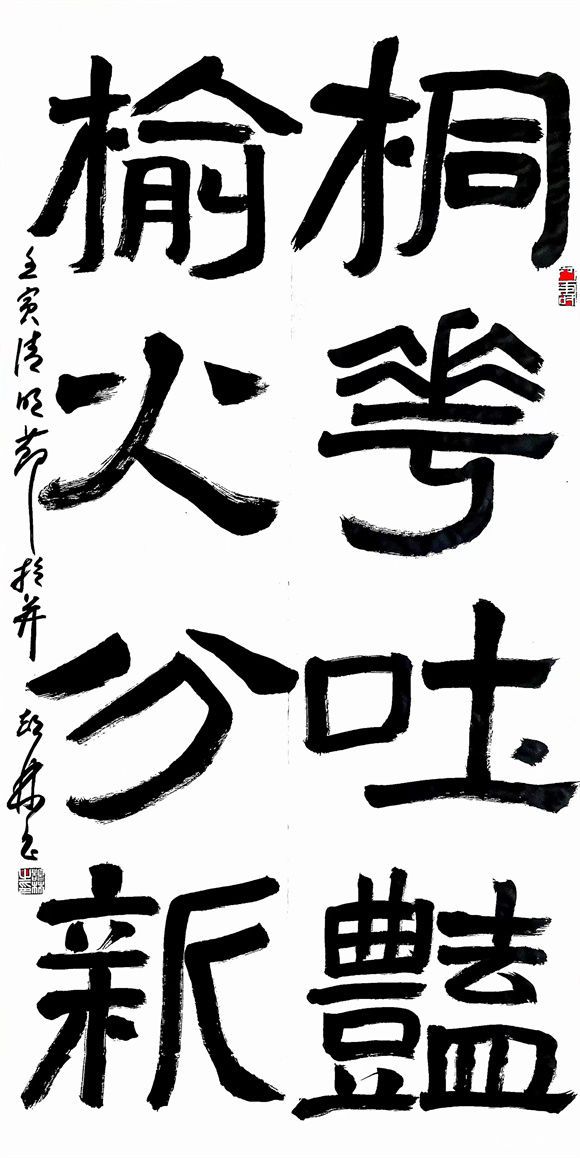 桐華吐豔
榆火分新
壬寅清明節於并